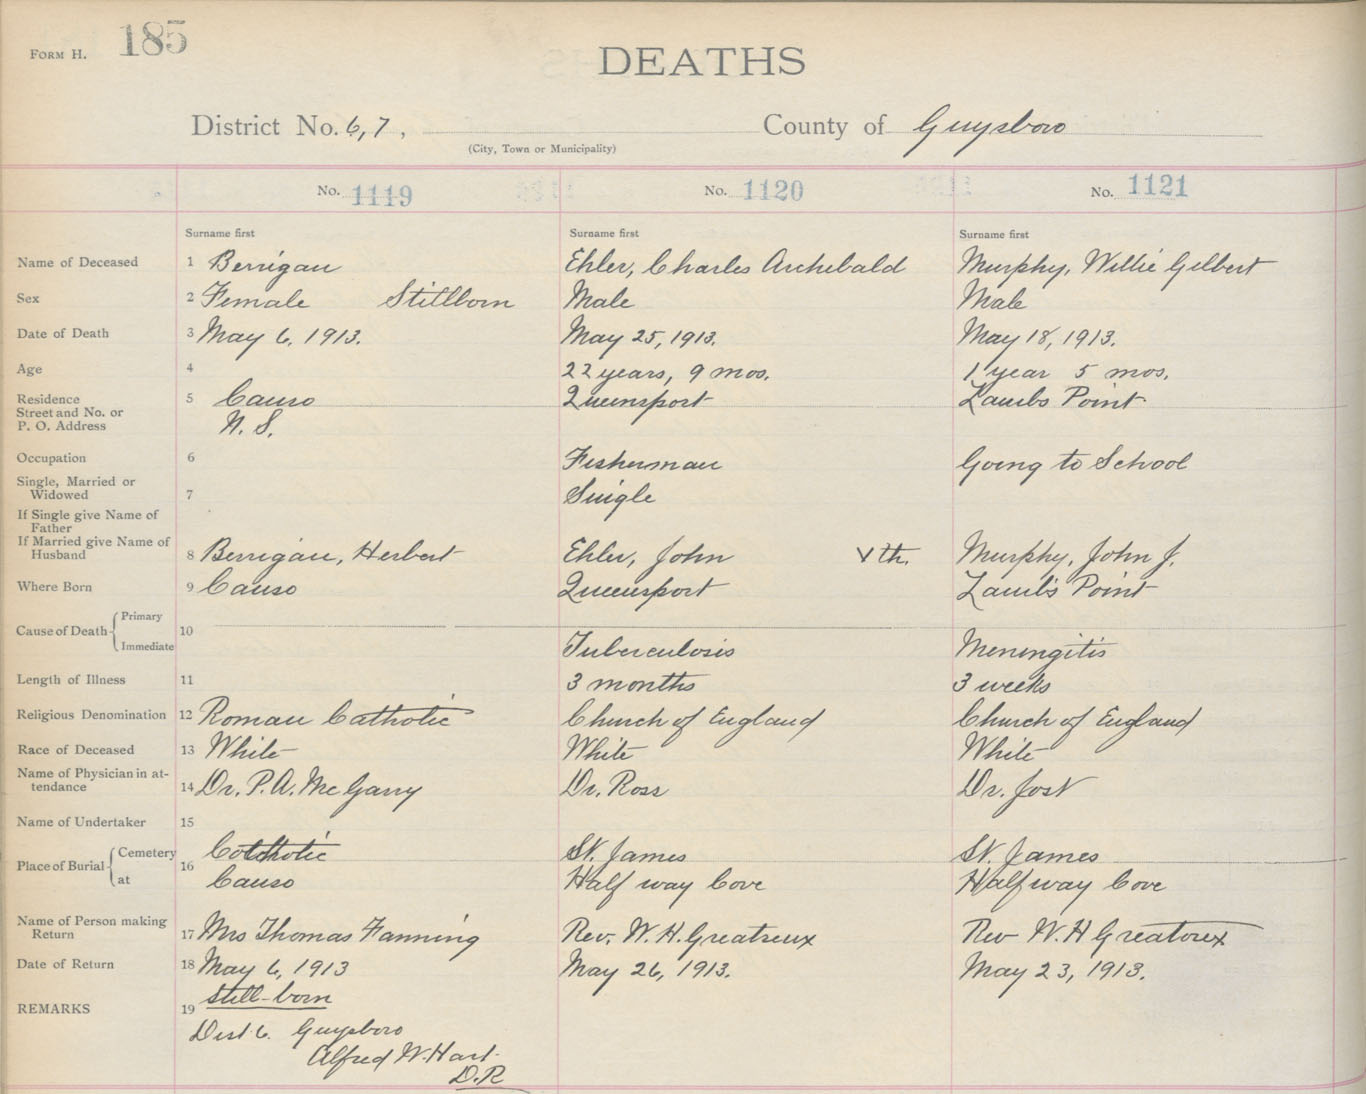 FORM H. 185
DEATHS
District No. 6, 7, County of Guysboro
(City, Town or Municipality)
No. 1119 No. 1120 No. 1121
Surname first Surname first Surname first
Name of Deceased 1 Berrigan Ehler, Charles Archibald Murphy, Willie Gilbert
Sex 2 Female Stillborn Male Male
Date of Death 3 May 6, 1913. May 25, 1913. May 18, 1913.
Age 4 22 years, 9 mos. 1 year 5 mos.
Residence 5 Canso Queensport Lambs Point
Street and No. or
P. O. Address N. S.
Occupation 6 Fisherman Going to School
Single, Married or
Widowed 7 Single
If Single give Name of
Father
If Married give Name of
Husband 8 Berrigan, Herbert Ehler, John Vth. Murphy, John J.
Where Born 9 Canso Queensport Lamb's Point
Cause of Death Primary 10
Immediate Tuberculosis Meningitis
Length of Illness 11 3 months 3 weeks
Religious Denomination 12 Roman Catholic Church of England Church of England
Race of Deceased 13 White White White
Name of Physician in at-
tendance 14 Dr. P. A. McGarry Dr. Ross Dr. Jost
Name of Undertaker 15
Place of Burial Cemetery 16 Catholic St. James St. James
at Canso Half way Cove Halfway Cove
Name of Person making
Return 17 Mrs Thomas Fanning Rev. W. H. Greatreux Rev W. H Greatorex
Date of Return 18 May 6, 1913 May 26, 1913. May 23, 1913.
REMARKS 19 Still-born
Dist 6. Guysboro
Alfred W. Hart.
D.R